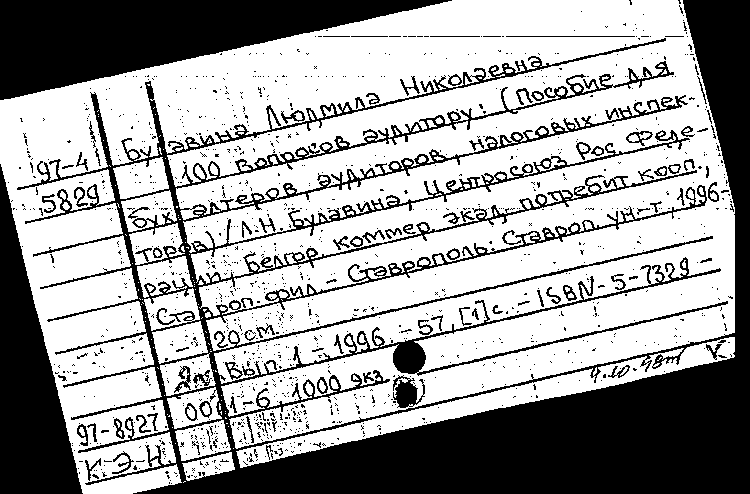 Булавина, Людмила Николаевна.
97-4 100 вопросов аудитору: (Пособие для
5829 бухгалтеров, аудиторов, налоговых инспек-
торов) / Л.Н. Булавина; Центросоюз Рос. Феде-
рации, Белгор. коммер. акад. потребит. кооп.,
Ставроп. фил. - Ставрополь: Ставроп. ун-т, 1996-
- 20 см.
Вып. 1 - 1996. - 57, [1] с. - ISBN- 5-7329-
97-8927 0001-6, 1000 экз.
К.Э.Н. 9.10.98
V